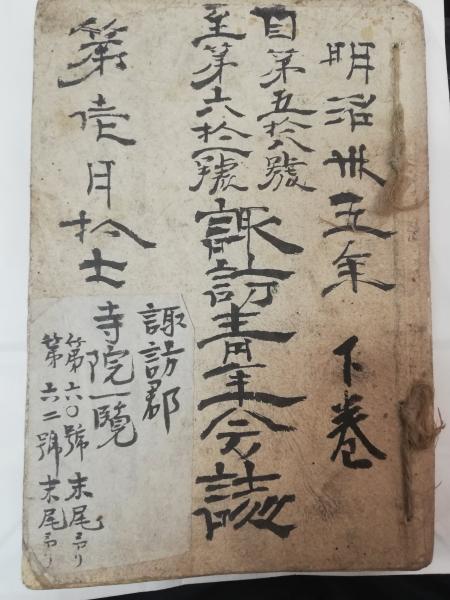 明治卅五年 下巻
自第五拾八號
至第六拾一號
諏訪青年会誌
第 月拾
諏訪郡
寺院一覧
第六〇號 末尾ニアリ
第六二號 末尾ニアリ